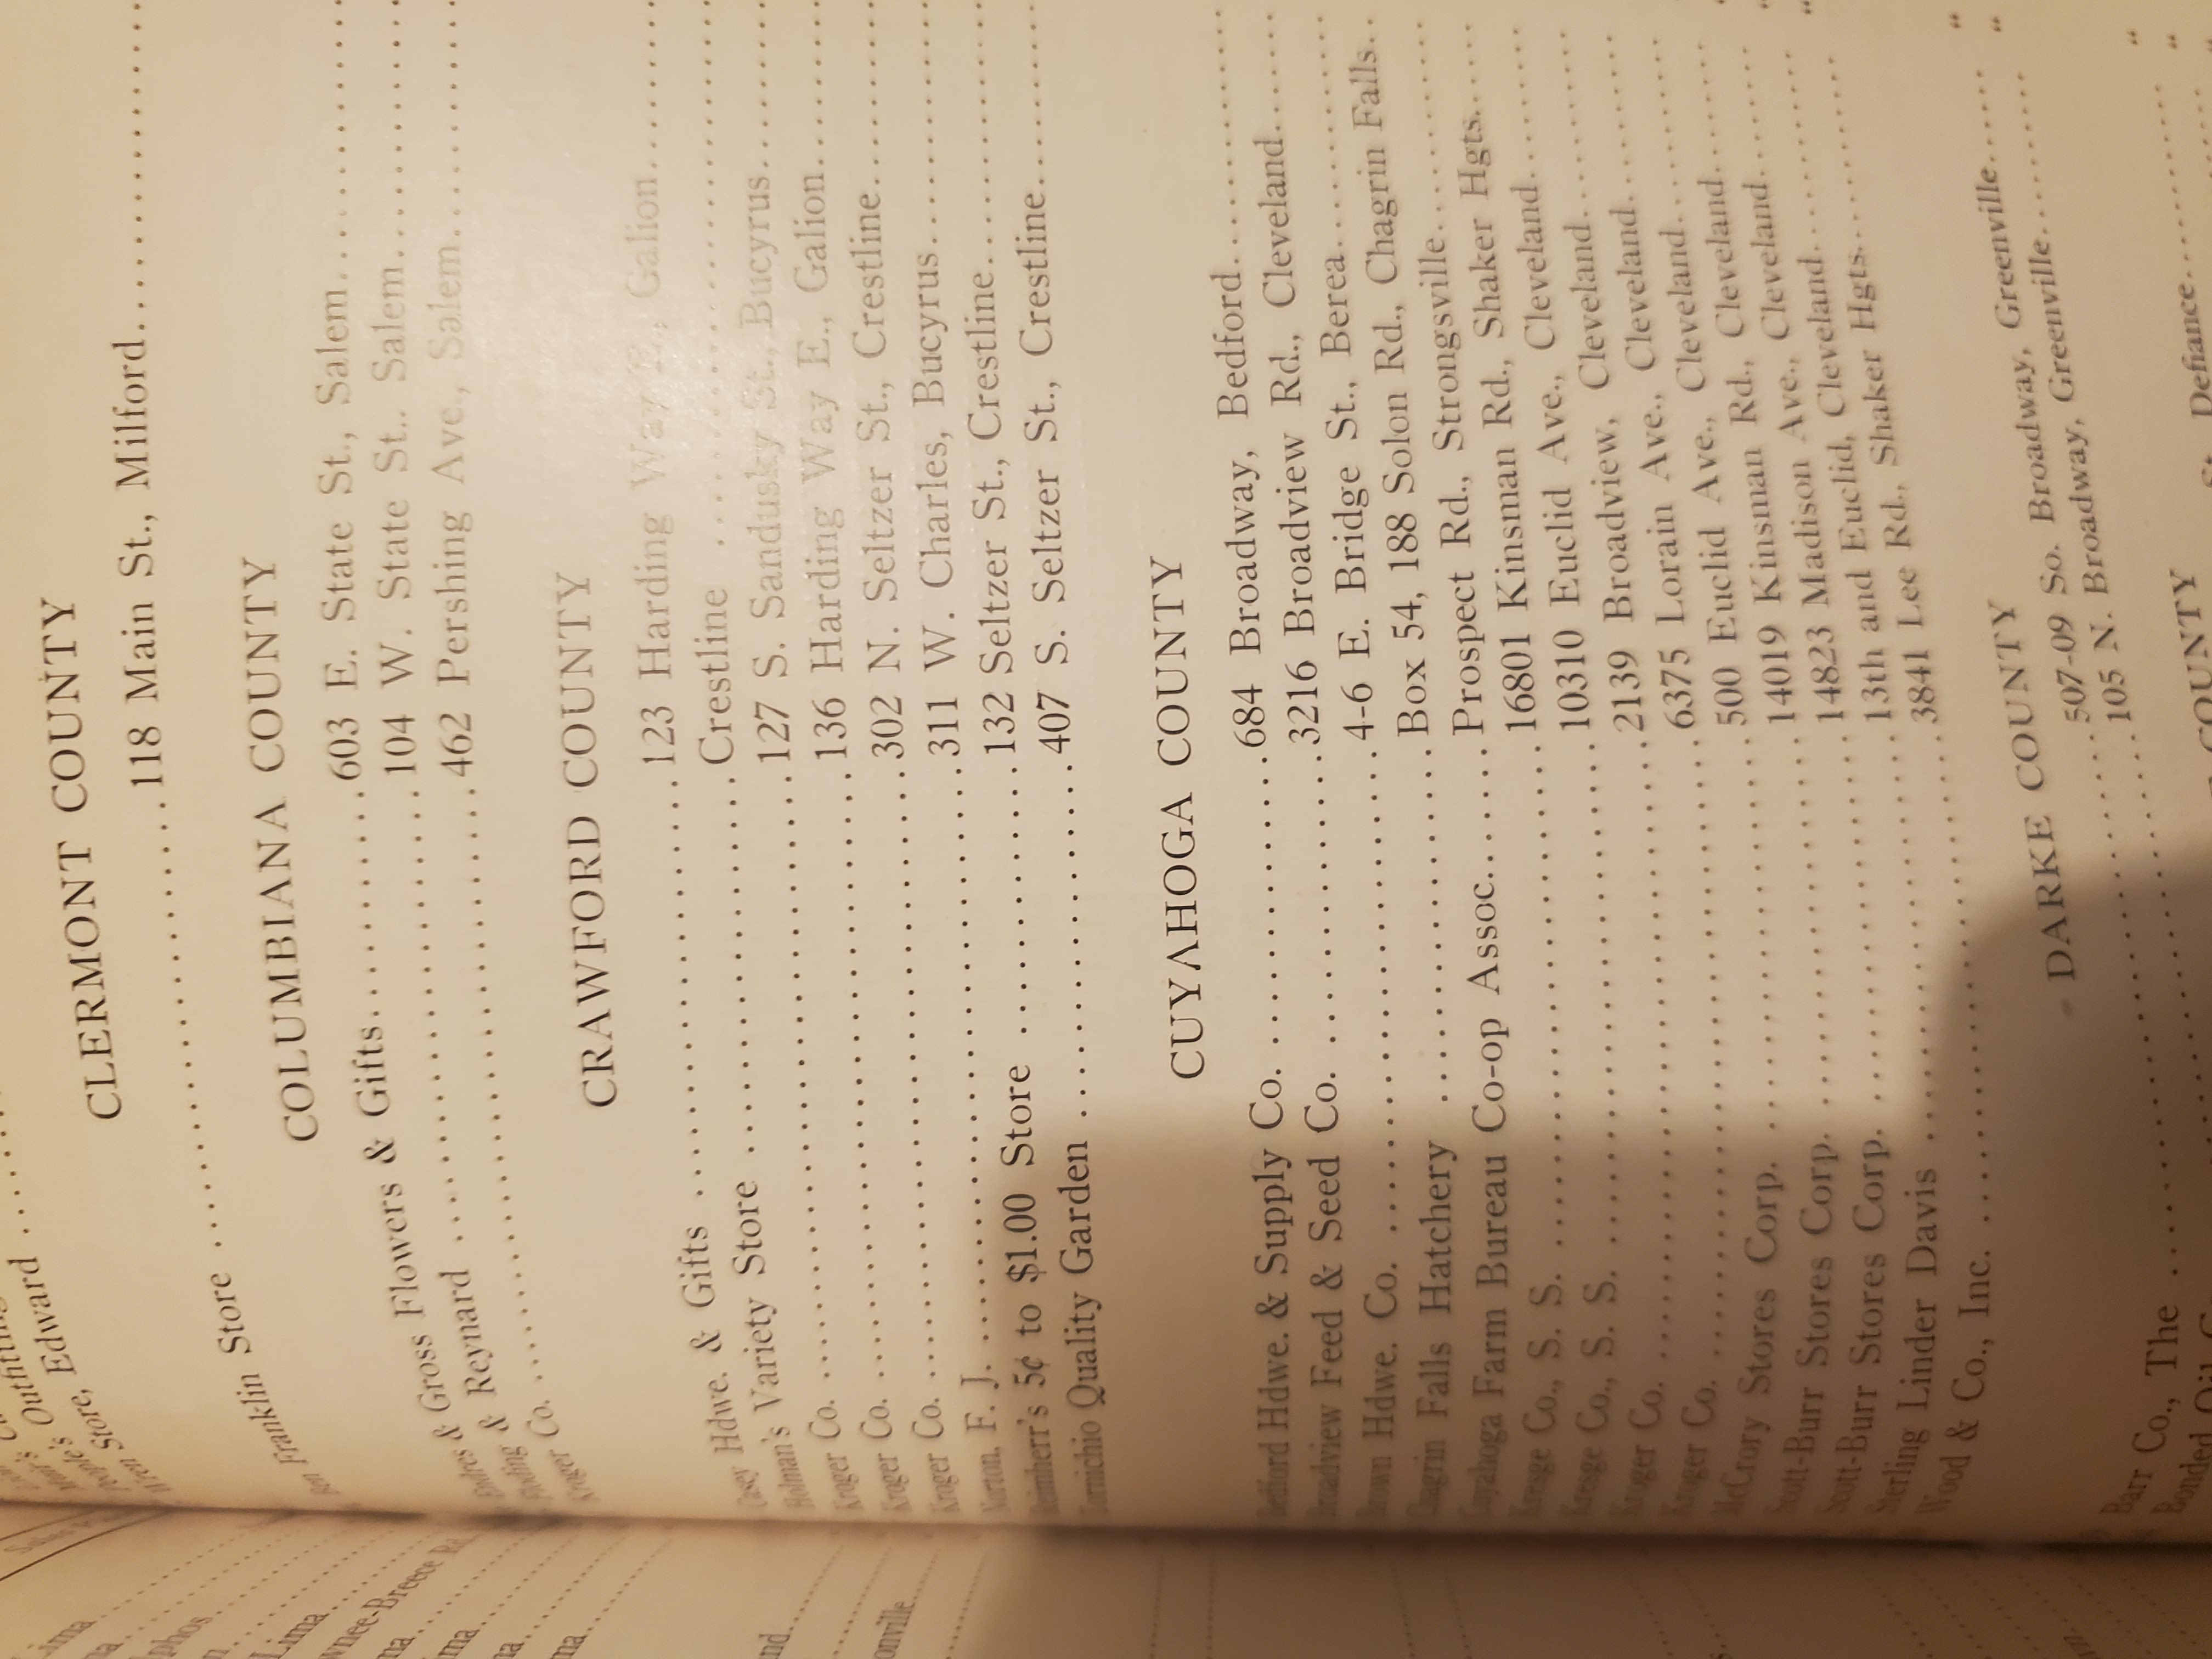 Outfitting
Store, Edward
Store,
CLERMONT COUNTY
Franklin Store ........ 118 Main St., Milford........
COLUMBIANA COUNTY
& Gross Flowers & Gifts........ 603 E. State St., Salem........
& Reynard ........ 104 W. State St.. Salem........
Kroger Co. ........ 462 Pershing Ave., Salem........
CRAWFORD COUNTY
Casey Hdwe. & Gifts ........ 123 Harding Way E., Galion........
Holman's Variety Store ........ Crestline ........
Kroger Co. ........ 127 S. Sandusky St., Bucyrus........
Kroger Co. ........ 136 Harding Way E., Galion........
Kroger Co. ........ 302 N. Seltzer St., Crestline........
Norton, F. J. ........ 311 W. Charles, Bucyrus........
5¢ to $1.00 Store ........ 132 Seltzer St., Crestline........
Quality Garden ........ 407 S. Seltzer St., Crestline........
CUYAHOGA COUNTY
Bedford Hdwe. & Supply Co. ........ 684 Broadway, Bedford........
Broadview Feed & Seed Co. ........ 3216 Broadview Rd., Cleveland........
Brown Hdwe. Co. ........ 4-6 E. Bridge St., Berea........
Chagrin Falls Hatchery ........ Box 54, 188 Solon Rd., Chagrin Falls..
Cuyahoga Farm Bureau Co-op Assoc........ Prospect Rd., Strongsville........
Kresge Co., S. S. ........ 16801 Kinsman Rd., Shaker Hgts........
Kresge Co., S. S. ........ 10310 Euclid Ave., Cleveland........
Kroger Co. ........ 2139 Broadview, Cleveland........
Kroger Co. ........ 6375 Lorain Ave., Cleveland........
McCrory Stores Corp. ........ 500 Euclid Ave., Cleveland........
Scott-Burr Stores Corp. ........ 14019 Kinsman Rd., Cleveland........ "
Scott-Burr Stores Corp. ........ 14823 Madison Ave., Cleveland........ "
Sterling Linder Davis ........ 13th and Euclid, Cleveland........ "
Wood & Co., Inc. ........ 3841 Lee Rd., Shaker Hgts........
DARKE COUNTY
507-09 So. Broadway, Greenville........ "
105 N. Broadway, Greenville........ "
COUNTY
Barr Co., The ........ "
Bonded Oil St., Defiance........ "